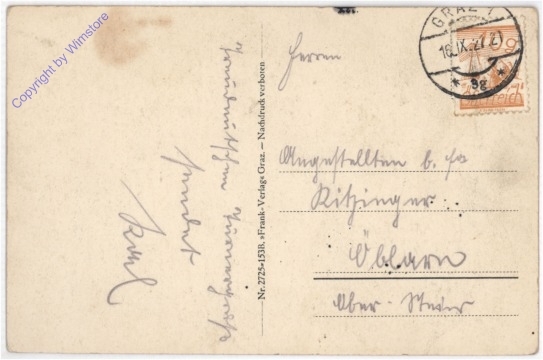 Copyright by Wimstore
sendet
Karl
Nr. 2725-1538. »Frank-Verlag« Graz. — Nachdruck verboten
GRAZ 1
16.IX.27.21
* 9g *
Herren
Angestellten b. Fa
Kitzinger
Öblarn
Ober-Steier